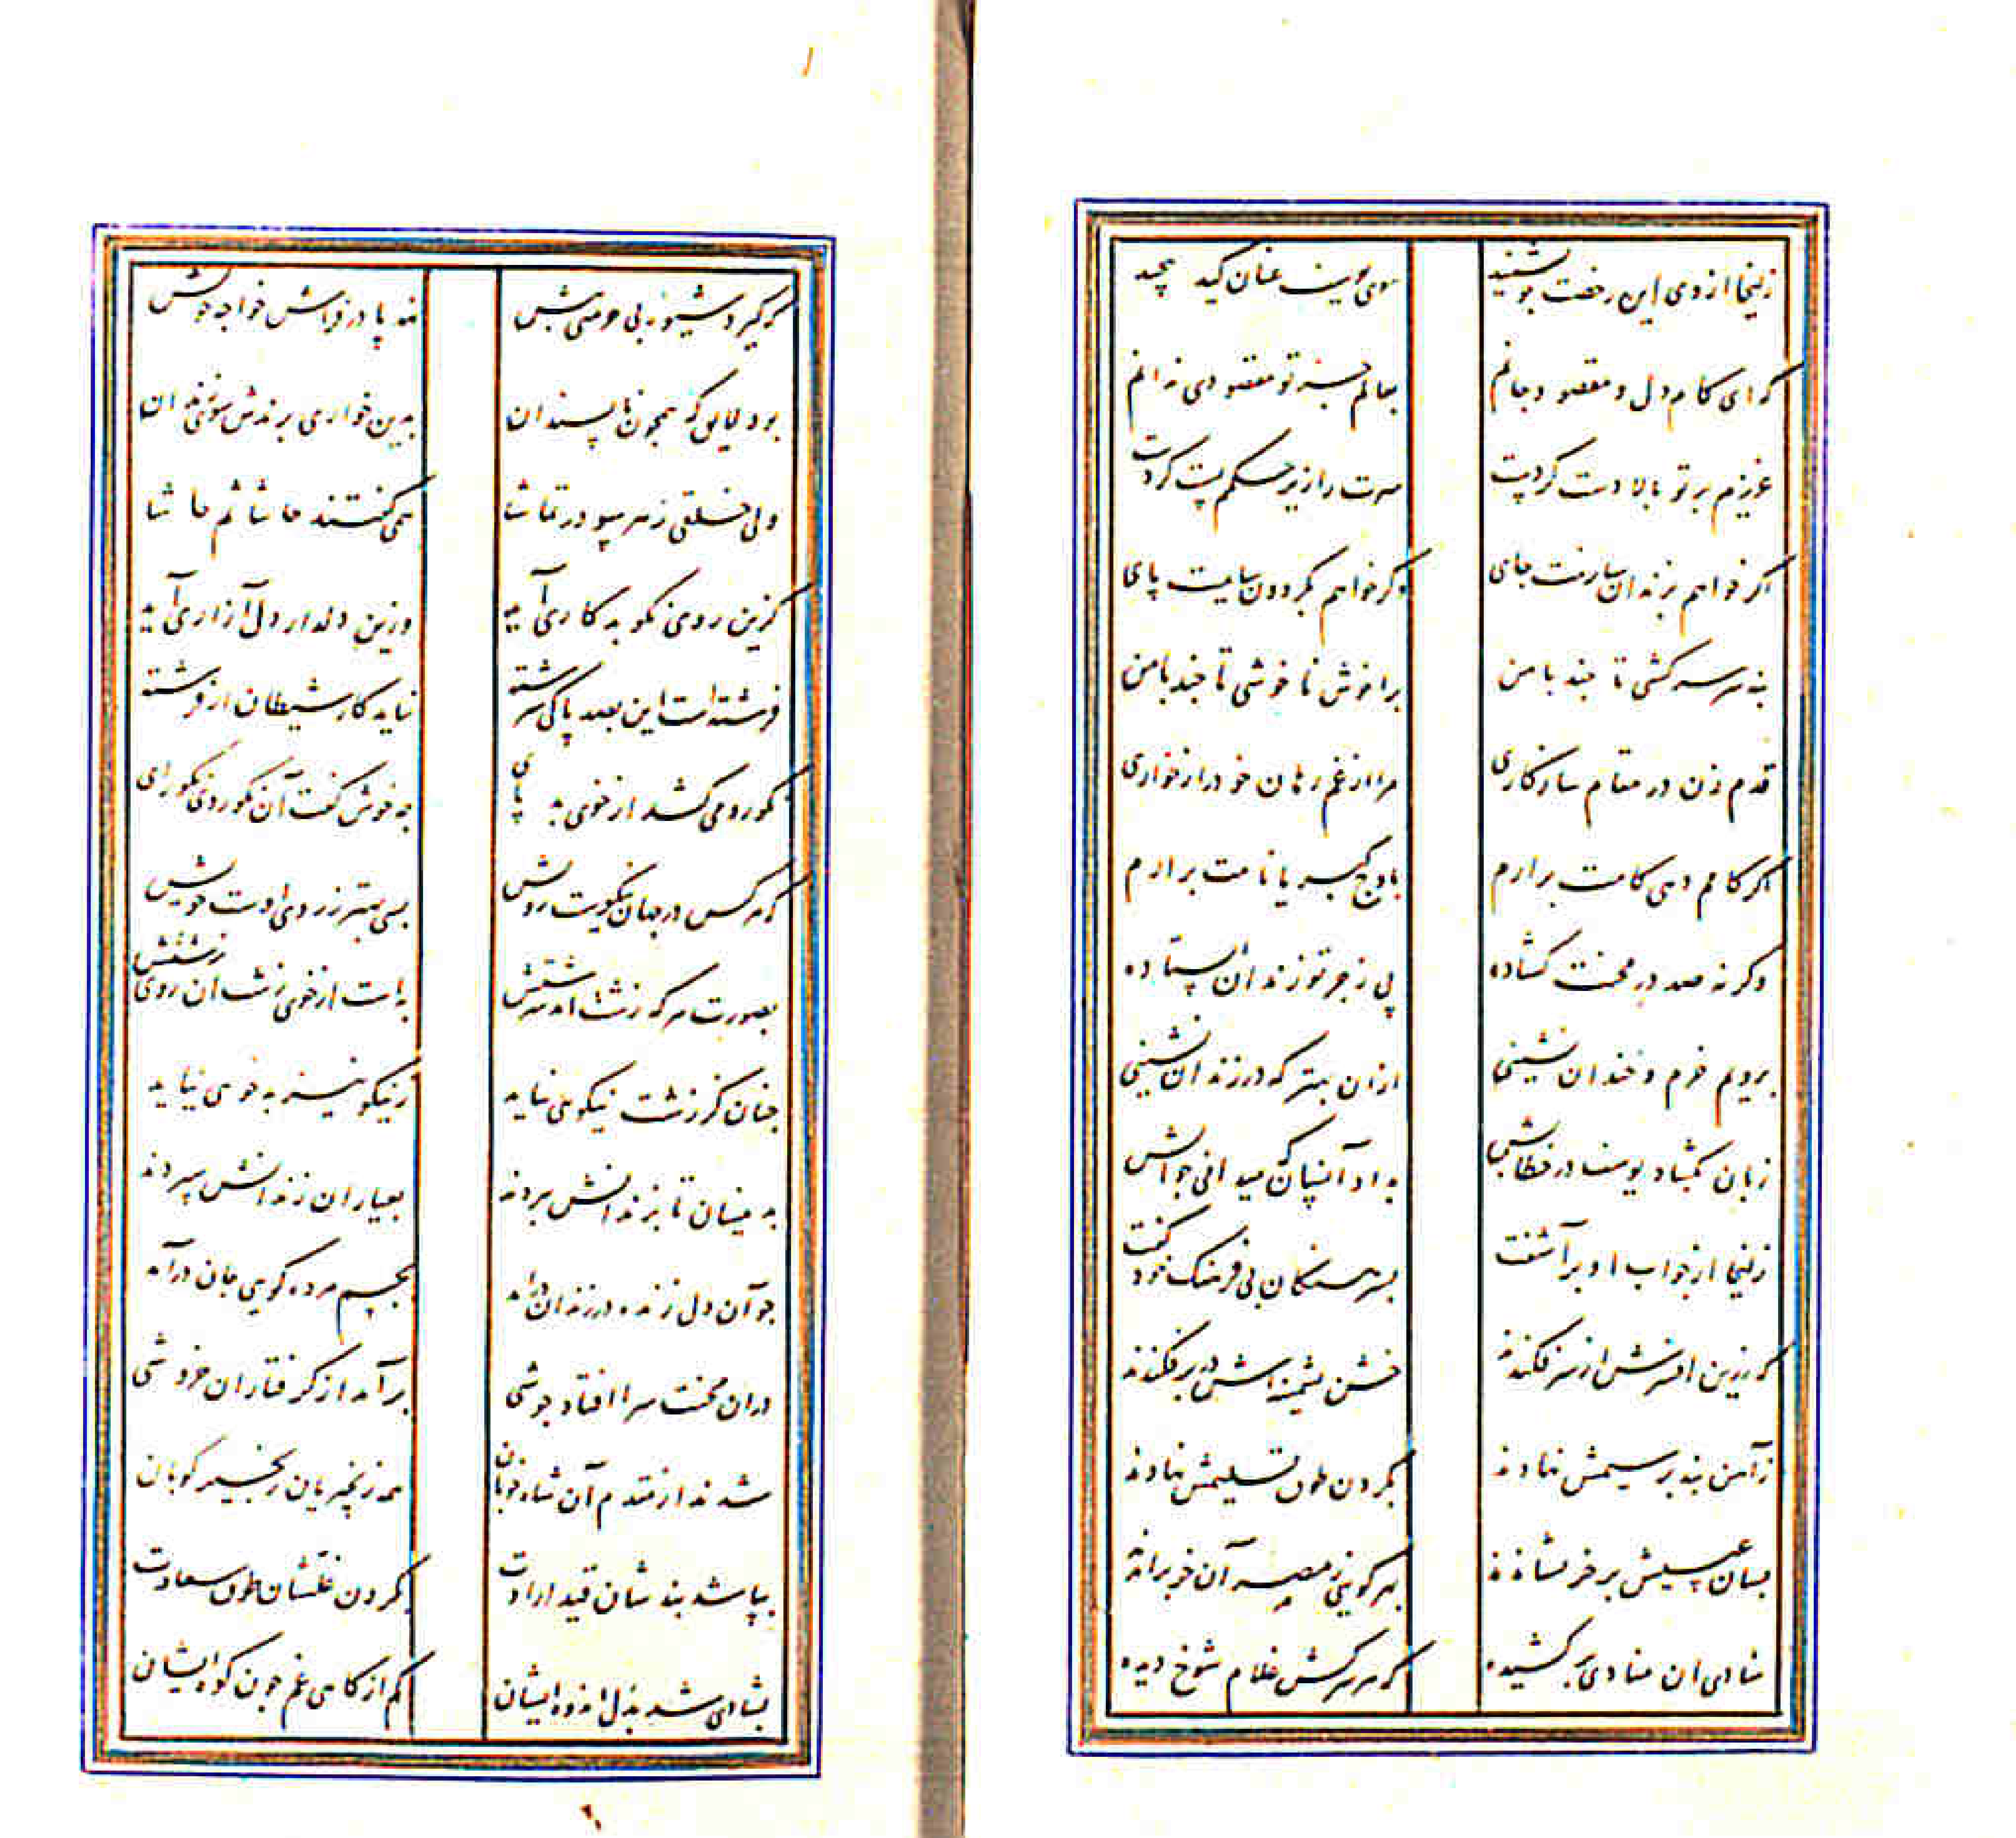 زلیخا از وی این رخصت چو بشنید سوی یوسف عنان کید پیچید
که ای کام دل و مقصود جانم بعالم جز تو مقصودی ندانم
عزیزم بر تو بالا دست کردست سرت را زیر حکمم پست کردست
اکر خواهم بزندان سازمت جای وکر خواهم بکردون سایمت پای
بنه سر سرکشی تا چند با من برا خوش ناخوشی تا چند با من
قدم زن در مقام سازکاری مرا از غم رهان خود را ز خواری
اکر کامم دهی کامت برارم باوج کبریا نامت برارم
وکرنه صد در محنت کشاده پی زجر تو زندان ایستاده
برویم خرم و خندان نشینی ازان بهتر که در زندان نشینی
زبان بکشاد یوسف در خطابش بداد آنسان که میدانی جوابش
زلیخا از جواب او برآشفت بسرهنکان بی فرهنک خود کفت
که زرین افسرش از سر فکندند خشن پشمینه اش در بر فکندند
ز آهن بند بر سیمش نهادند بکردن طوق تسلیمش نهادند
بسان عیسیش بر خر نشاندند بهر کویی ز مصر آن خر براندند
منادی منادی برکشیده که هر سرکش غلام شوخ دیده
که کیرد شیوه بی حرمتی پیش نهد پا در فراش خواجه خویش
بود لایق که همچون ناپسندان بدین خواری برندش سوی زندان
ولی خلقی ز هر سو در تماشا همی کفتند حاشا ثم حاشا
کزین روی نکو بدکاری آید وزین دلدار دل آزاری آید
فرشته است این بصد پاکی سرشته نیاید کار شیطان از فرشته
نکورو می کشد از خوی بد پای چه خوش کفت آن نکوروی نکورای
که هر کس در جهان نیکوست رویش بسی بهتر ز روی اوست خویش
بصورت هر که زشت آمد سرشتش بد است از خوی زشت آن روی زشتش
چنان کز زشت نیکویی نیاید ز نیکو نیز بدخویی نیاید
بدینسان تا بزندانش بردند بعیاران زندانش سپردند
چو آن دل زنده در زندان درآمد بجسم مرده کویی جان درآمد
دران محنت سرا افتاد جوشی برآمد از کرفتاران خروشی
شدند از مقدم آن شاه خوبان همه زنجیریان زنجیر کوبان
بپا شد بندشان قید ارادت بکردن غلشان طوق سعادت
بشادی شد بدل اندوه ایشان کم از کاهی غم چون کوه ایشان